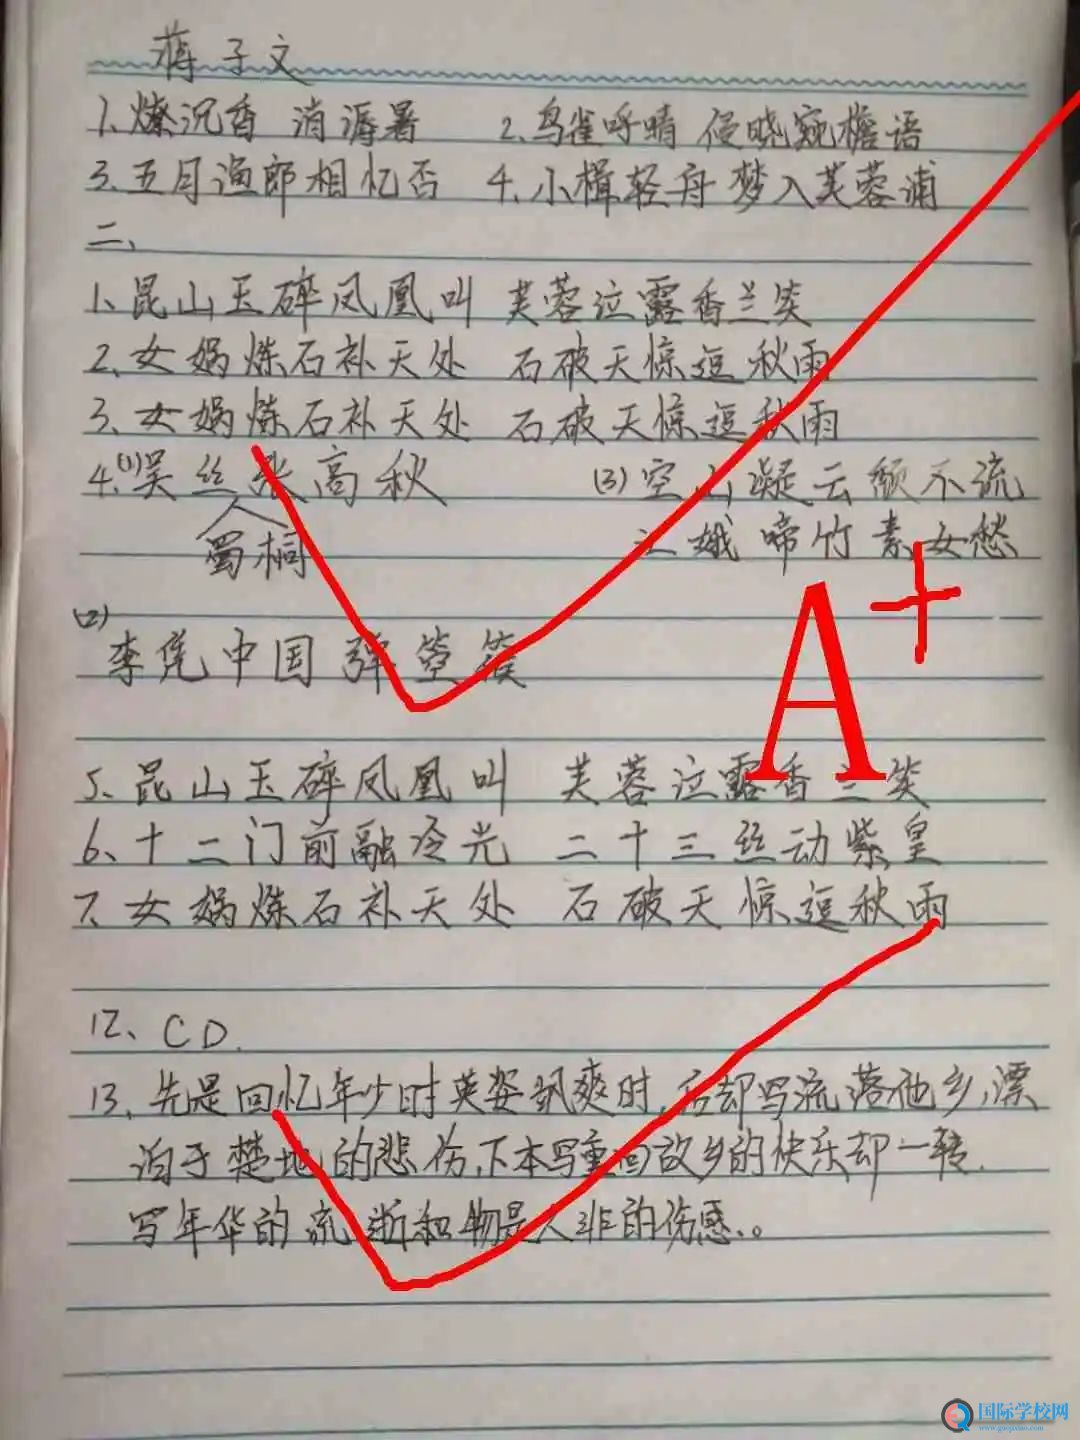 蒋子文
1、燎沉香 消溽暑 2、鸟雀呼晴 侵晓窥檐语
3、五月渔郎相忆否 4、小楫轻舟 梦入芙蓉浦
二、
1、昆山玉碎凤凰叫 芙蓉泣露香兰笑
2、女娲炼石补天处 石破天惊逗秋雨
3、女娲炼石补天处 石破天惊逗秋雨
4、(1)吴丝张高秋 (3)空山凝云颓不流
蜀桐 江娥啼竹素女愁
(2)
李凭中国弹箜篌
A+
5、昆山玉碎凤凰叫 芙蓉泣露香兰笑
6、十二门前融冷光 二十三丝动紫皇
7、女娲炼石补天处 石破天惊逗秋雨
12、CD.
13、先是回忆年少时英姿飒爽时,后却写流落他乡,漂
泊于楚地的悲伤,下本写重回故乡的快乐却一转.
写年华的流逝和物是人非的伤感、。
国际学校网